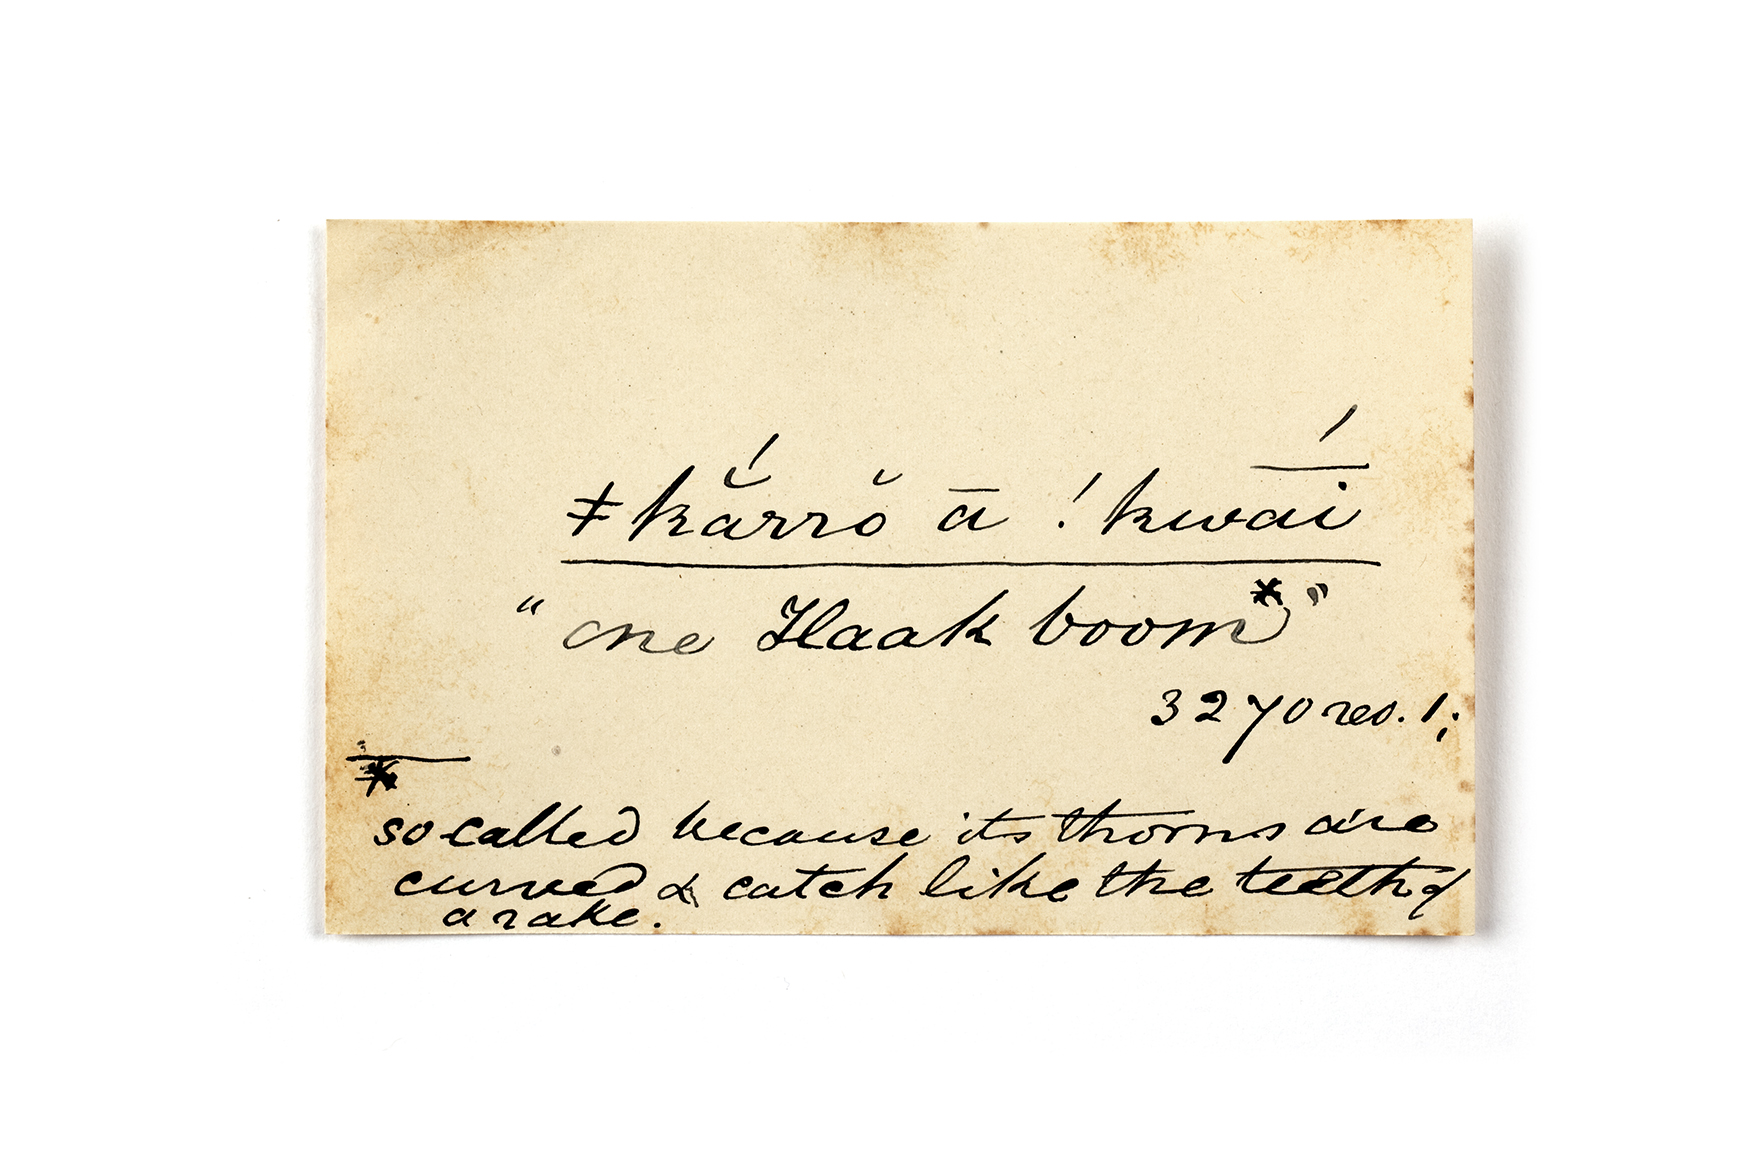 ǂkắrrŏ ā !kwā́i
"one Haak boom*"
3270 rev. 1;
*
so called because its thorns are
curved & catch like the teeth of
a rake.